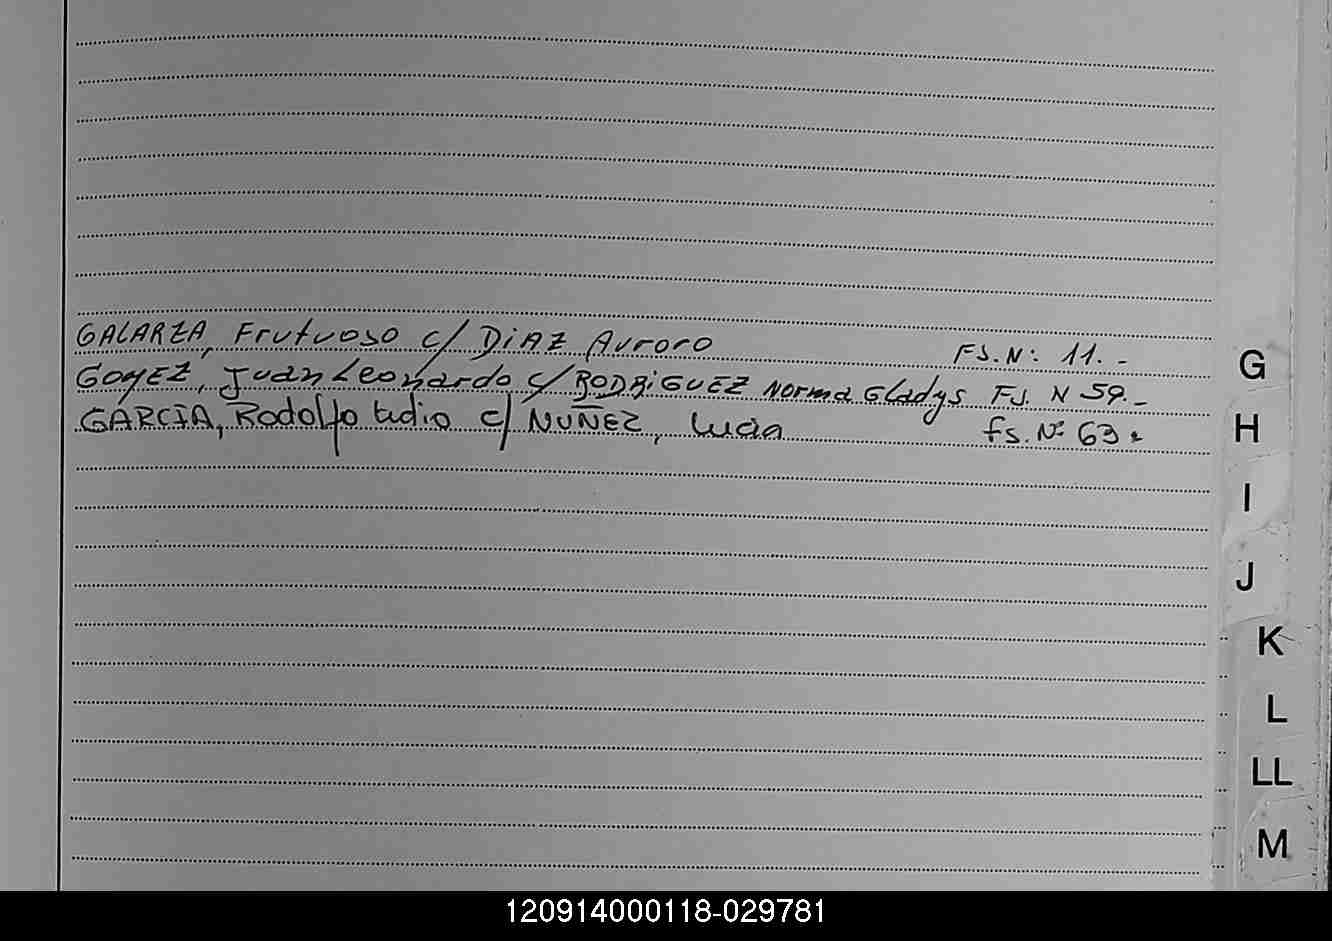 GALARZA, Frutuoso c/ DiAZ Auroro Fs. N: 11.-
GOMEZ, Juan Leonardo c/ RODRiGUEZ Norma Gladys Fs. N 59.-
GARCIA, Rodolfo c/ NUÑEZ, Lucia fs. Nº 63.
G
H
I
J
K
L
LL
M
120914000118-029781